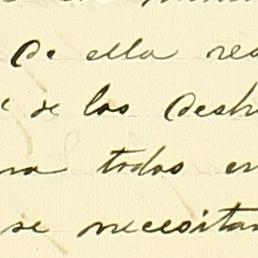 De ella res
de las desh
na todas en
se necesitan